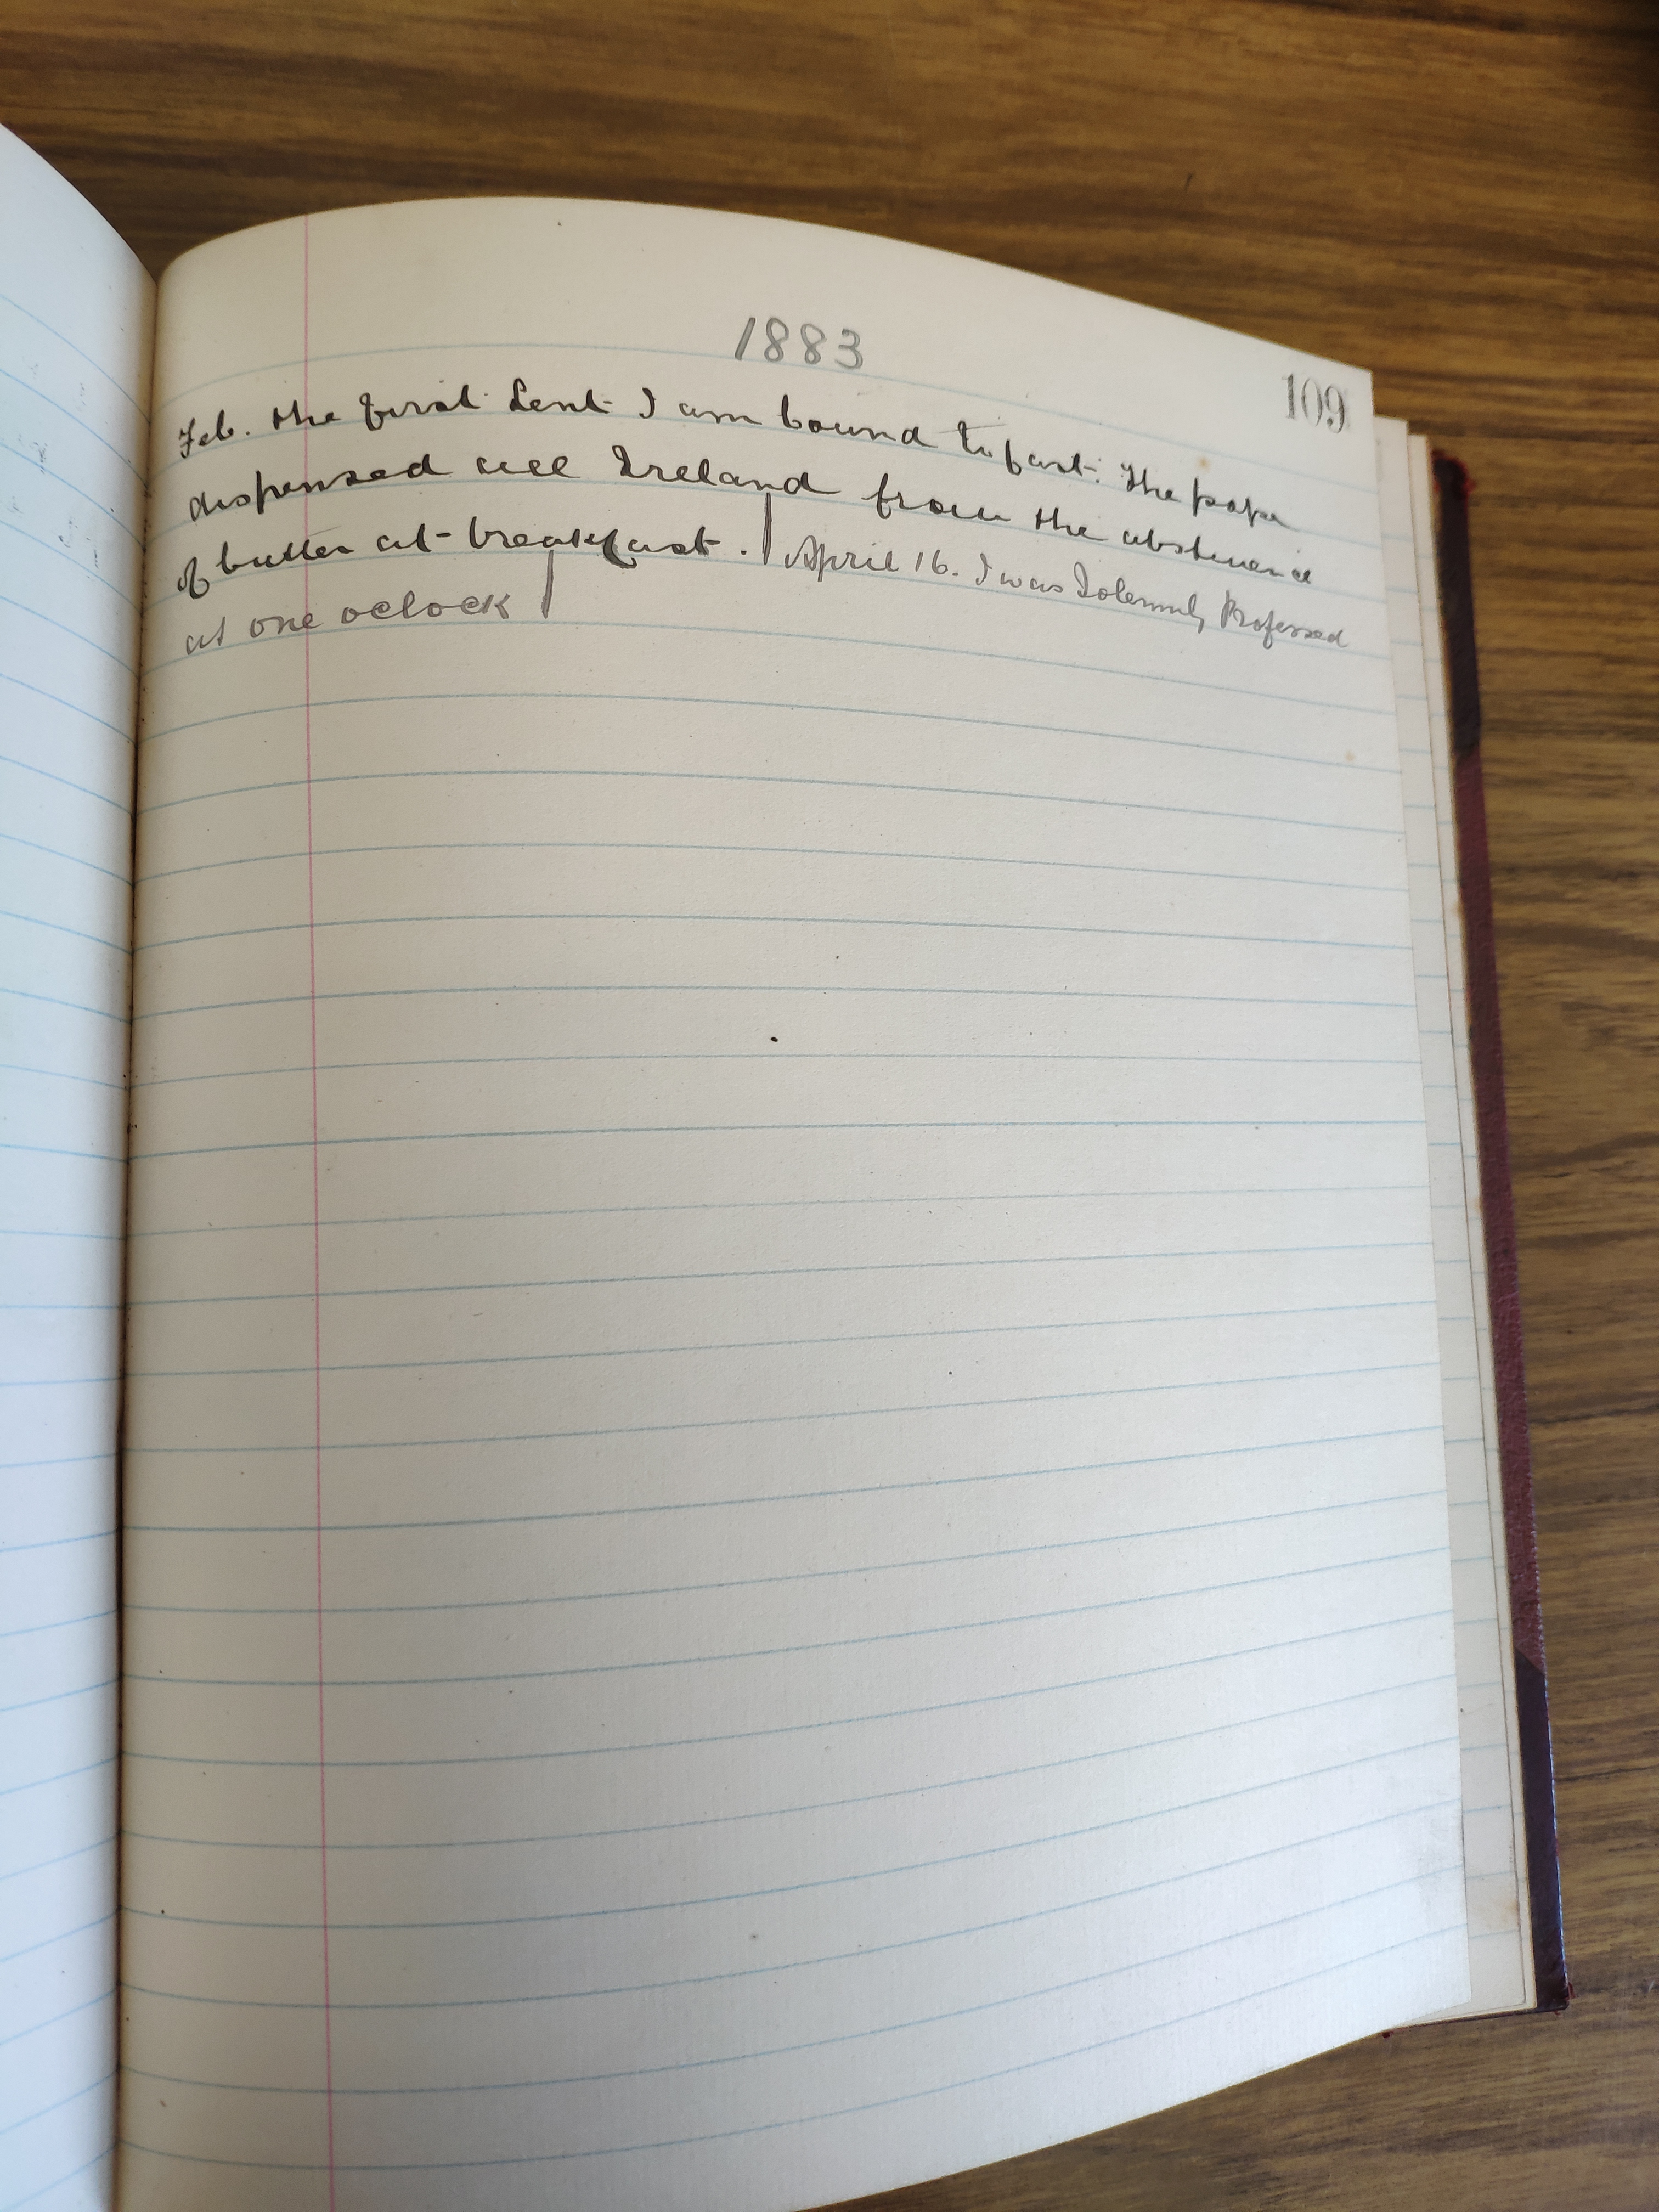 1883
109
Feb. the first Lent I am bound to fast. The pope
dispensed all Ireland from the abstinence
of butter at breakfast. | April 16. I was Solemnly Professed
at one oclock |